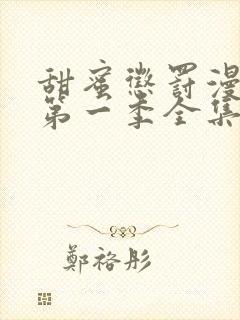 甜蜜懲罰漫
第一季全集
鄭裕彤